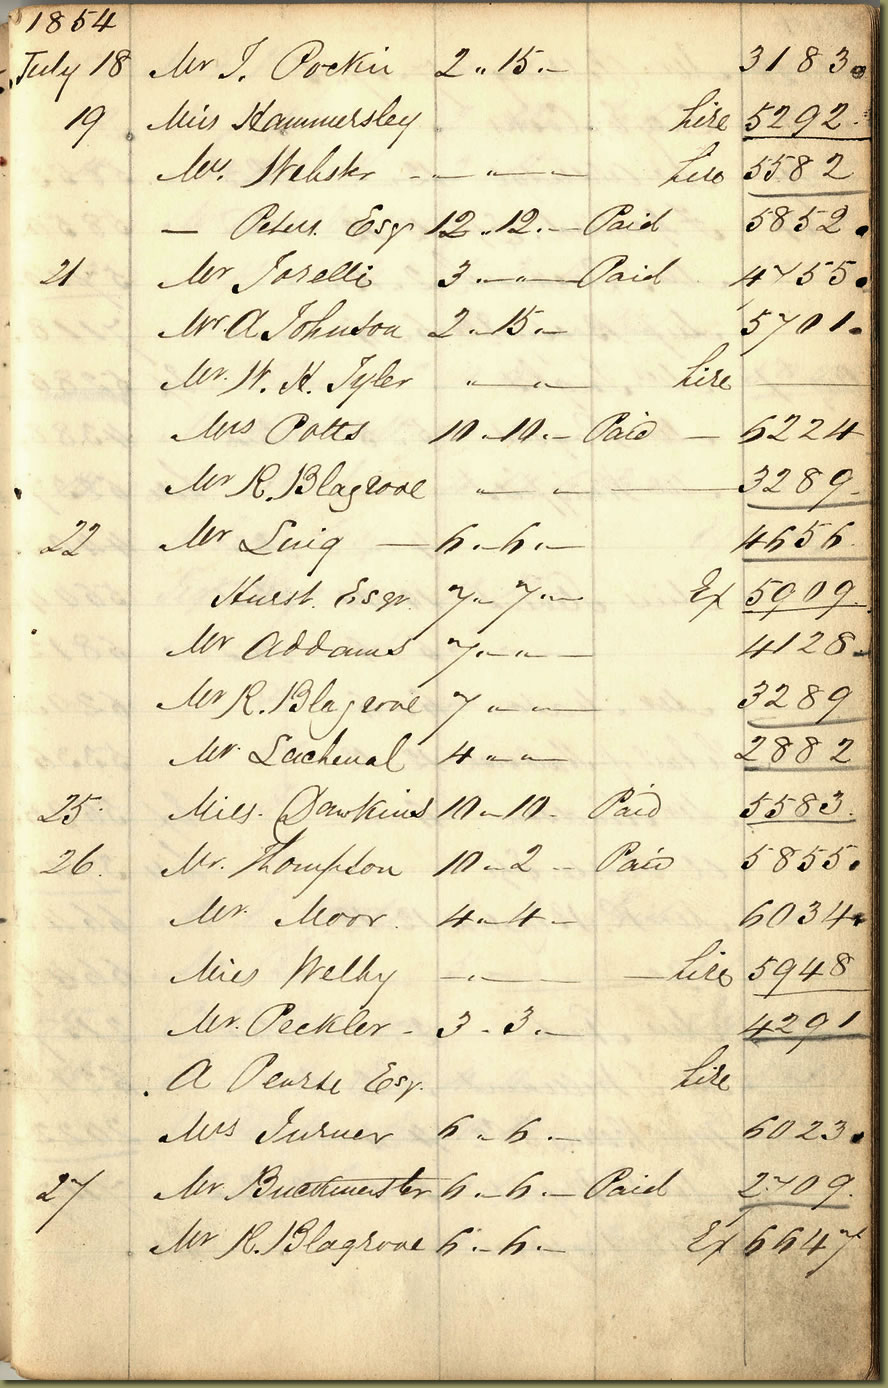 1854
July 18 Mr J. Pockir 2 .. 15 .. — 3183
19 Miss Hammersley hire 5292
Mrs. Webster - — " — " — hire 5582
— Peters. Esqr 12 .. 12 .. — Paid 5852
21 Mr Jorelli 3 .. — " — Paid 4755
Mr. A Johnson 2 .. 15 .. — 5701
Mr. W. H. Tyler " — " — hire —
Mrs Potts 10 .. 10 .. — Paid — 6224
Mr R. Blagrove " — " — — 3289
22 Mr Luig — 6 .. 6 .. — 4656
Hurst. Esqr. 7 .. 7 .. — Ex 5909
Mr Addams 7 .. — " — 4128
Mr R. Blagrove 7 " — " — 3289
Mr. Lachenal 4 " — " — 2882
25 Miss. Dawkins 10 .. 10 .. Paid 5583
26. Mr. Thompson 10 .. 2 — Paid 5855
Mr. Moor. 4 .. 4 .. — 6034
Miss Welby — " — — hire 5948
Mr. Peckler - 3 .. 3 .. — 4291
A Pearse Esqr. hire
Mrs Turner 6 .. 6 .. — 6023
27 Mr Buckmaster 6 .. 6 .. — Paid 2709
Mr R. Blagrove 6 .. 6 .. — Ex 6647